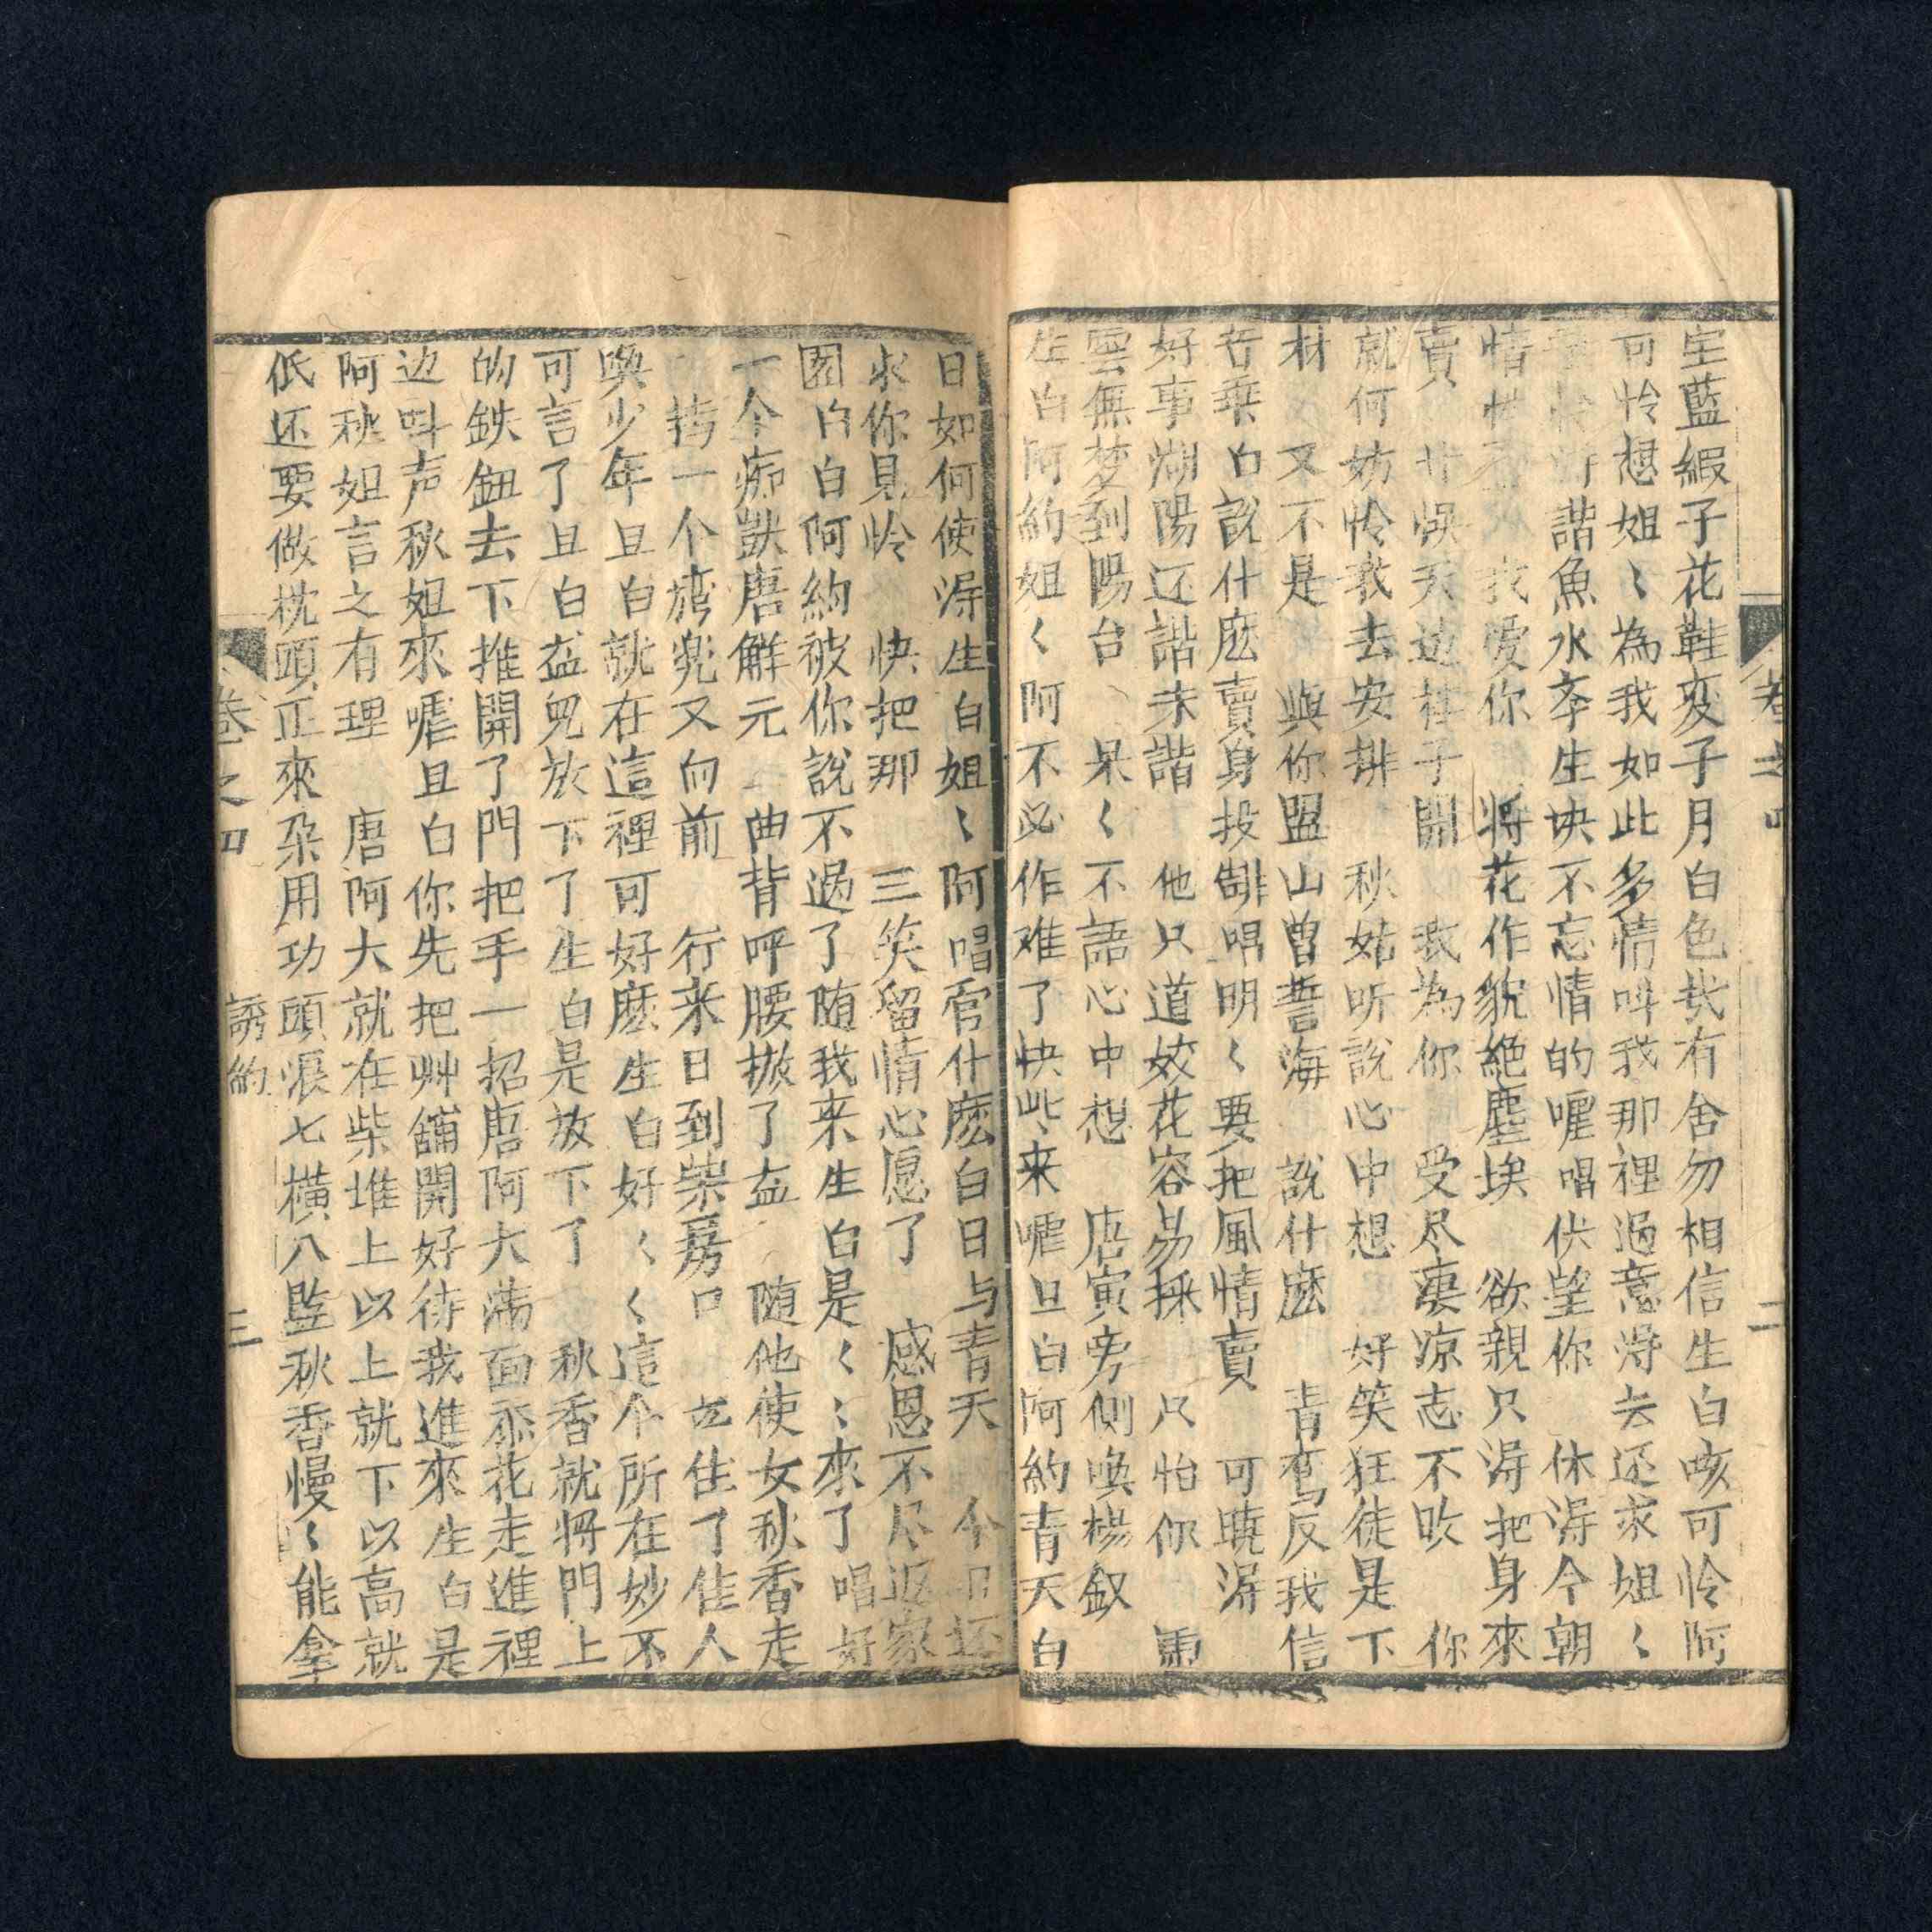 宝藍縀子花鞋変子月白色我有舍勿相信生白咳可怜阿
可怜想姐〻為我如此多情呌我那裡過意淂去还求姐〻
諧魚水夲生块不忘情的嚯唱伏望你 休淂今朝
情性 我愛你 将花作貌絶塵埃 欲親只淂把身來
賣 悞天边桂子開 我為你 受尽凄凉志不攺 你
就何妨怜我去安排 秋姑听說心中想 好笑狂徒是下
材 又不是 與你盟山曽誓海 說什庅 青鸾反我信
音乗白說什庅賣身投靠唱明〻要把風情賣 可曉淂
好事湖陽还諧未諧 他只道姣花容易採 只怕你 雨
雲無梦到陽台 呆〻不語心中想 唐寅旁側喚楊釵
生白阿約姐〻阿不必作难了快些来嚯旦白阿約青天白
卷之四
二
日如何使淂生白姐〻阿唱管什庅白日与青天 今日还
求你見怜 快把那 三笑留情心愿了 感恩不尽返家
園白白阿約被你說不過了随我来生白是〻〻來了唱好
一个痴獃唐觧元 曲背呼腰掇了盆 随他使女秋香走
一个 兠又向前 行来日到柴房口 立住了隹人
喚少年旦白就在這裡可好庅生白好〻〻這个所在妙不
可言了旦白盆児放下了生白是放下了 秋香就将門上
的鉄鈕去下推開了門把手一招唐阿大满面添花走進裡
边呌声秋姐來嚯旦白你先把艸舖開好待我進來生白是
阿秋姐言之有理 唐阿大就在柴堆上以上就下以高就
低还要做枕頭正來朶用功頭㖓七横八監秋香慢〻能拿
卷之四
誘約
三